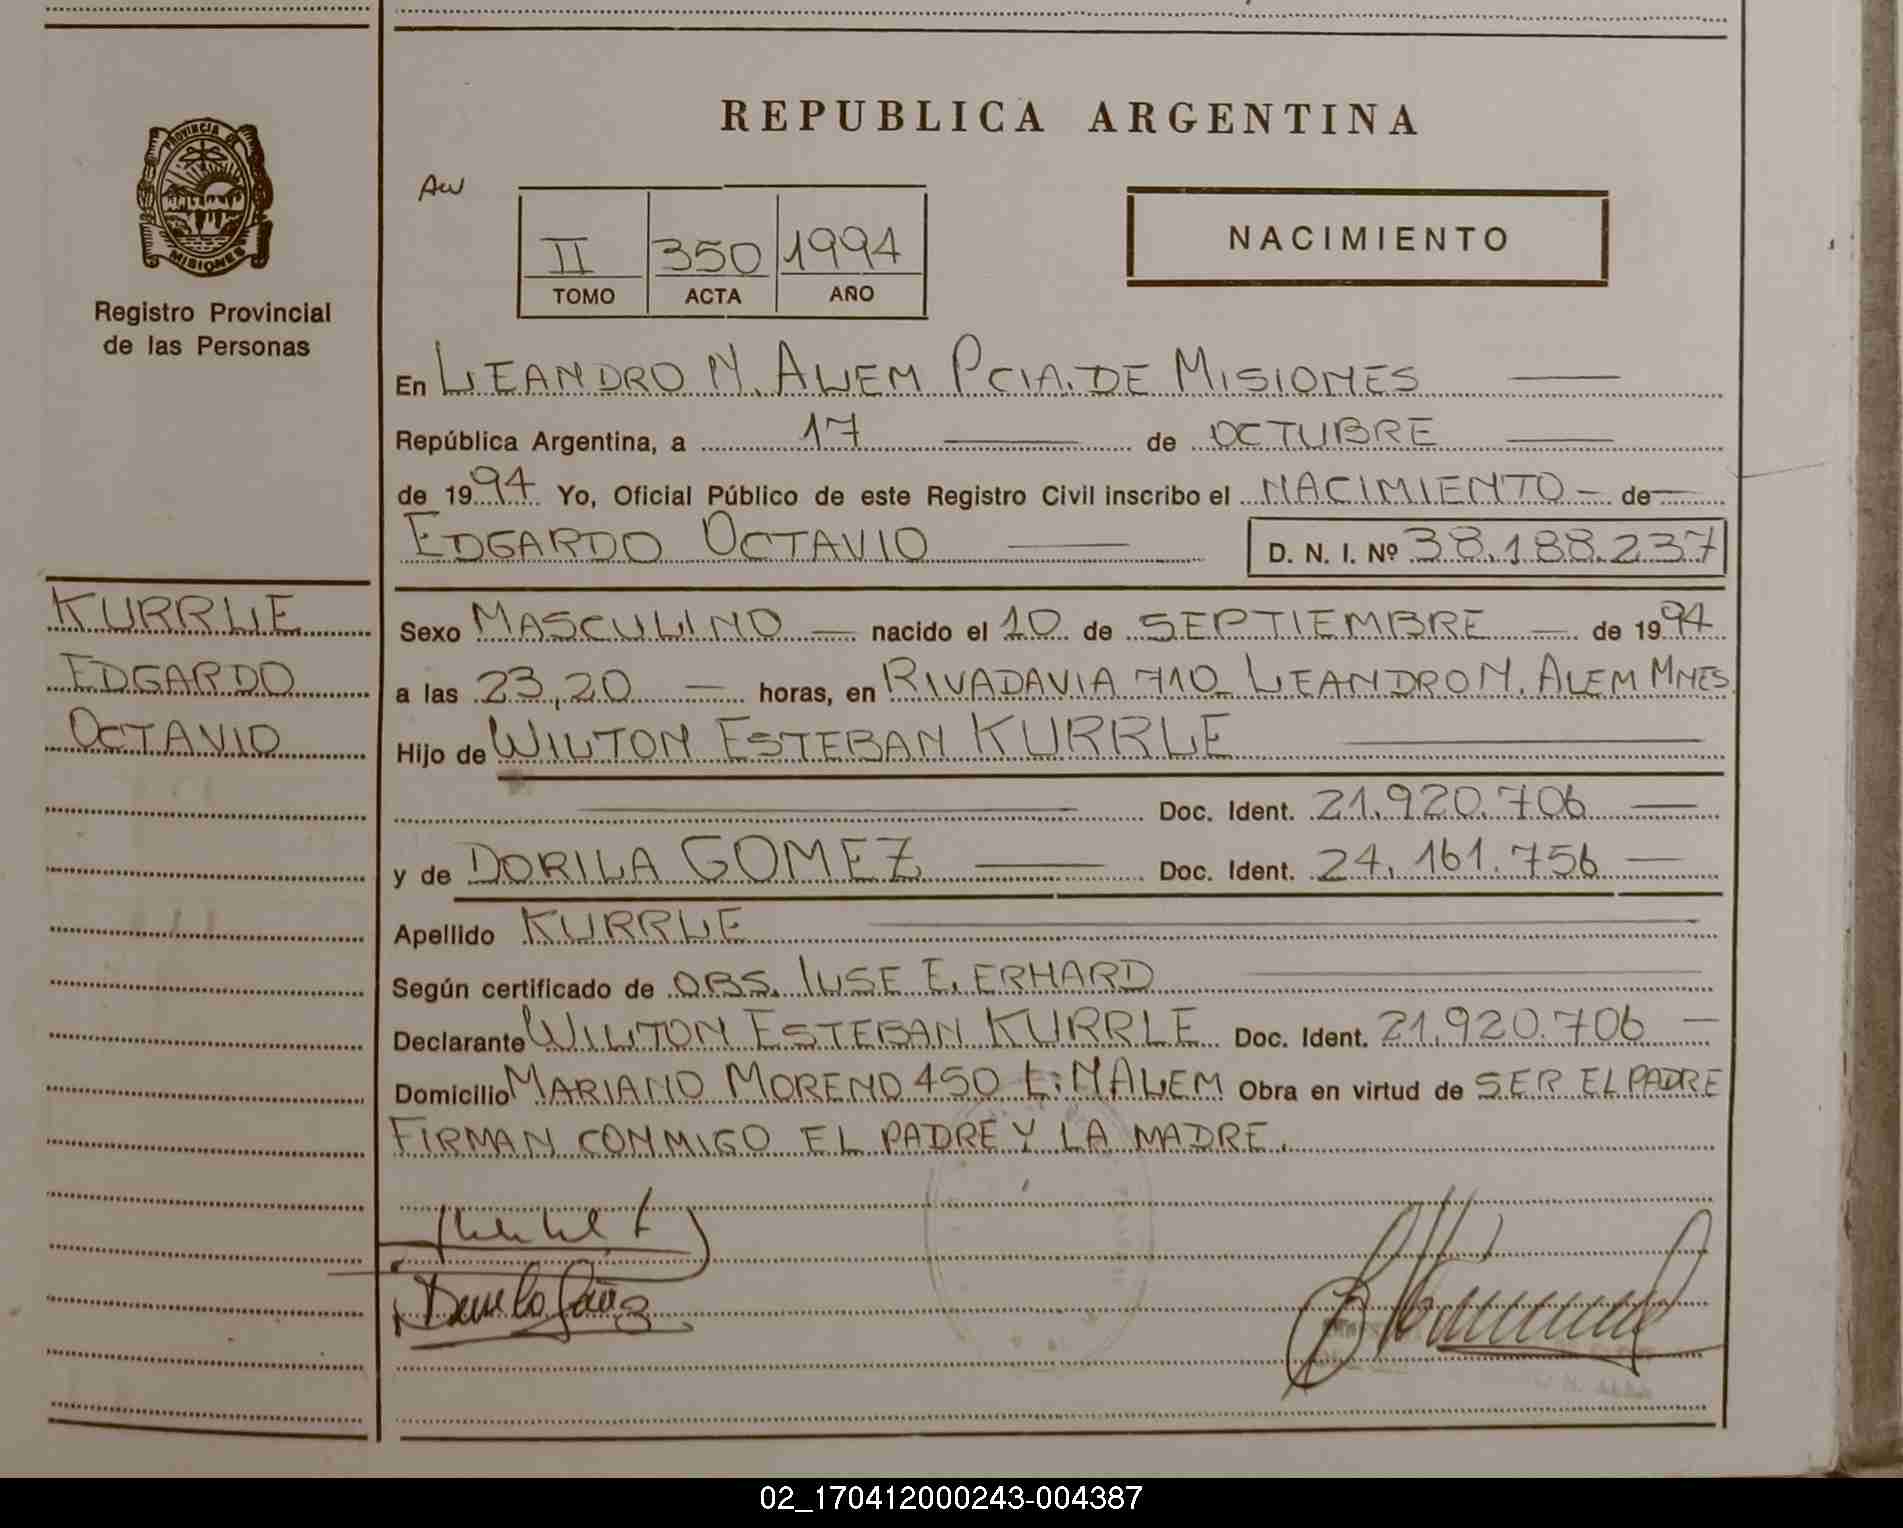 REPUBLICA ARGENTINA
PROVINCIA DE
MISIONES
Registro Provincial
de las Personas
AW
II 350 1994
TOMO ACTA AÑO
NACIMIENTO
En LEANDRO N. ALEM PCIA. DE MISIONES
República Argentina, a 17 de OCTUBRE
de 1994 Yo, Oficial Público de este Registro Civil inscribo el NACIMIENTO de
EDGARDO OCTAVIO D. N. I. Nº 38.188.237
KURRLE
EDGARDO
OCTAVIO
Sexo MASCULINO nacido el 10 de SEPTIEMBRE de 1994
a las 23,20 horas, en RIVADAVIA 710 LEANDRO N. ALEM MNES.
Hijo de WILTON ESTEBAN KURRLE
Doc. Ident. 21.920.706
y de DORILA GOMEZ Doc. Ident. 24.161.756
Apellido KURRLE
Según certificado de OBS. ILSE E. ERHARD
Declarante WILTON ESTEBAN KURRLE Doc. Ident. 21.920.706
Domicilio MARIANO MORENO 450 L. N ALEM Obra en virtud de SER EL PADRE
FIRMAN CONMIGO EL PADRE Y LA MADRE.
02_170412000243-004387